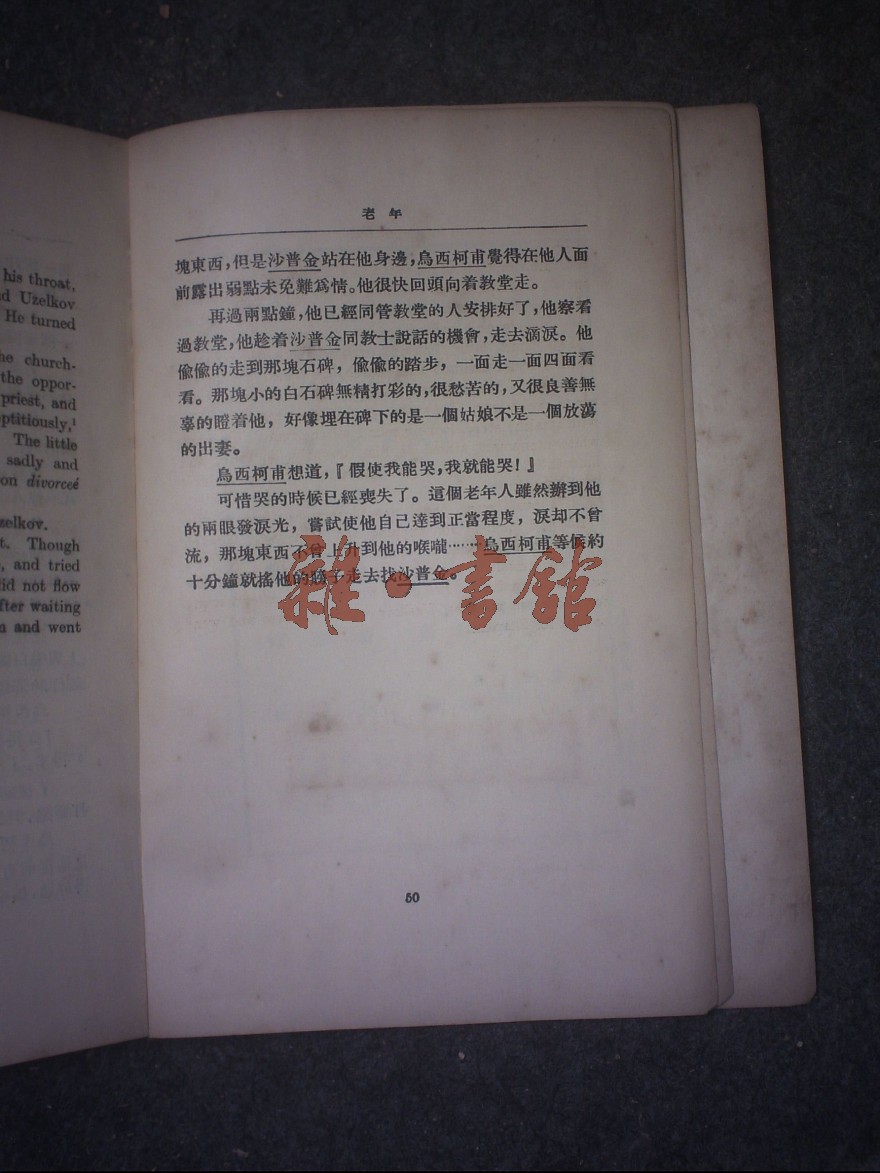 his throat,
d Uzelkov
He turned
he church-
the oppor-
priest, and
optitiously,¹
The little
sadly and
on divorceé
zelkov.
t. Though
, and tried
did not flow
fter waiting
n and went
老年
塊東西，但是沙普金站在他身邊，烏西柯甫覺得在他人面
前露出弱點未免難爲情。他很快回頭向着教堂走。
再過兩點鐘，他已經同管教堂的人安排好了，他察看
過教堂，他趁着沙普金同教士說話的機會，走去滴淚。他
偸偸的走到那塊石碑，偸偸的踏步，一面走一面四面看
看。那塊小的白石碑無精打彩的，很愁苦的，又很良善無
辜的瞪着他，好像埋在碑下的是一個姑娘不是一個放蕩
的出妻。
烏西柯甫想道，『假使我能哭，我就能哭！』
可惜哭的時候已經喪失了。這個老年人雖然辦到他
的兩眼發淚光，嘗試使他自己達到正當程度，淚却不曾
流，那塊東西不曾上升到他的喉嚨……烏西柯甫等候約
十分鐘就搖他的膀子走去找沙普金。
雜·書館
50